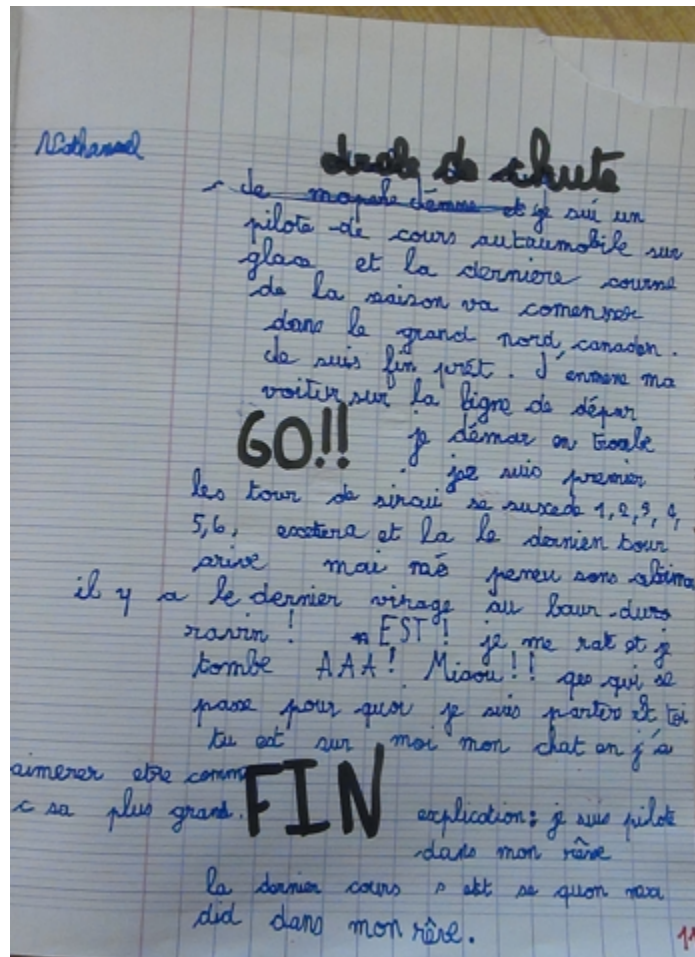 Nathanael
drole de chute
je mapele démma et je sui un
pilote de cours autaumobile sur
glace et la derniere course
de la saison va comensser
dans le grand nord canaden.
Je suis fin prêt. J'enmene ma
voitur sur la ligne de dépar
GO!! je démar en trombe
je suis premier
les tour de sirqui se suxede 1, 2, 3, 4,
5, 6, excetera et la le dernien tour
arive mai mé peneu sons abima
il y a le dernier virage au baur du
ravin ! EST ! je me rat et je
tombe AAA! Miaou!! qes qui se
passe pour quoi je suis parter et toi
tu est sur moi mon chat en j'a
aimerer etre comm
c sa plus grand. FIN explication: je suis pilote
dans mon rêve
la dernier cours s est se quon ma
did dans mon rêve.
11